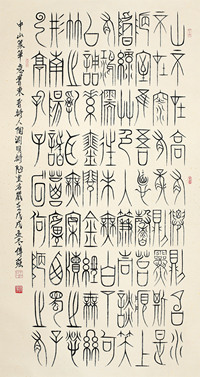 山不在高有仙則名水
不在深有龍則靈斯是
陋室惟吾德馨苔痕上
階綠草色入簾青談笑
有鴻儒往來無白丁可
以調素琴閱金經無絲
竹之亂耳無案牘之勞
形南陽諸葛廬西蜀子
雲亭孔子云何陋之有
中山篆筆意書東晉詩人陶淵明詩陋室銘